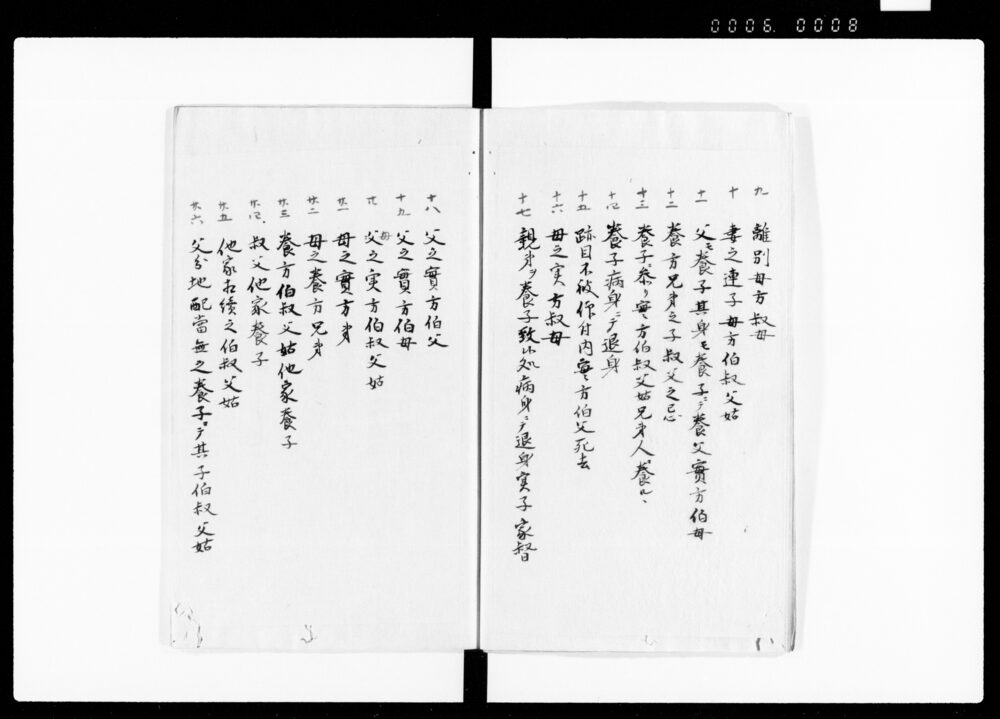 0006. 0008
九 離別母方叔母
十 妻之連子母方伯叔父姑
十一 父モ養子其身モ養子ニテ養父實方伯母
十二 養方兄弟之子叔父之忌
十三 養子ニ参り實方伯叔父姑兄弟人養
十四 養子病身ニテ退身
十五 跡目不被仰付内實方伯父死去
十六 母之実方叔母
十七 親弟ヲ養子致候処病身ニテ退身実子家督
十八 父之實方伯父
十九 父之實方伯母
廿 父母之実方伯叔父姑
廿一 母之實方弟
廿二 母之養方兄弟
廿三 養方伯叔父姑他家養子
廿四 叔父他家養子
廿五 他家相續之伯叔父姑
廿六 父分地配當無之養子ニテ其子伯叔父姑